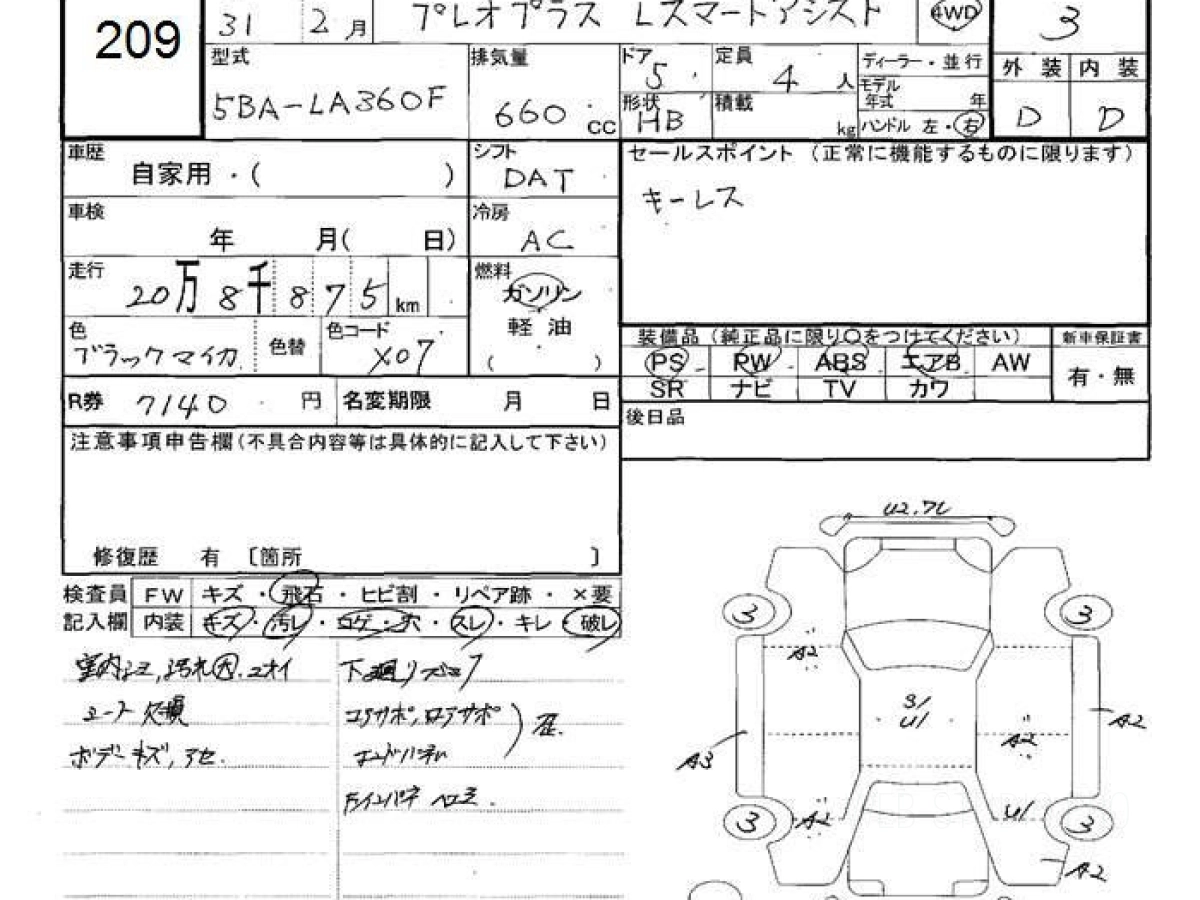 209
31 2 月
プレオプラス Lスマートアシスト
4WD
3
型式
5BA-LA360F
排気量
660 cc
ドア
5
定員
4 人
形状
HB
積載
kg
ディーラー・並行
モデル
年式 年
ハンドル 左・右
外装 内装
D D
車歴
自家用・( )
シフト
DAT
セールスポイント (正常に機能するものに限ります)
キーレス
車検
年 月( 日)
冷房
AC
走行
20万8千875km
燃料
ガソリン
軽油
( )
色
ブラックマイカ
色替
色コード
X07
装備品 (純正品に限り○をつけてください)
新車保証書
PS PW ABS エアB AW
SR ナビ TV カワ
有・無
R券 7140 円
名変期限 月 日
後日品
注意事項申告欄(不具合内容等は具体的に記入して下さい)
修復歴 有 〔箇所 〕
検査員 FW キズ・飛石・ヒビ割・リペア跡・×要
記入欄 内装 キズ・汚レ・コゲ・穴・スレ・キレ・破レ
室内 汚れ大
ボデーキズ, アセ.
下廻り
コアサポ, ロアサポ
U2.
3 3
A2
S1
U1
A2
A2
A3
3 A2 U1 3
A2